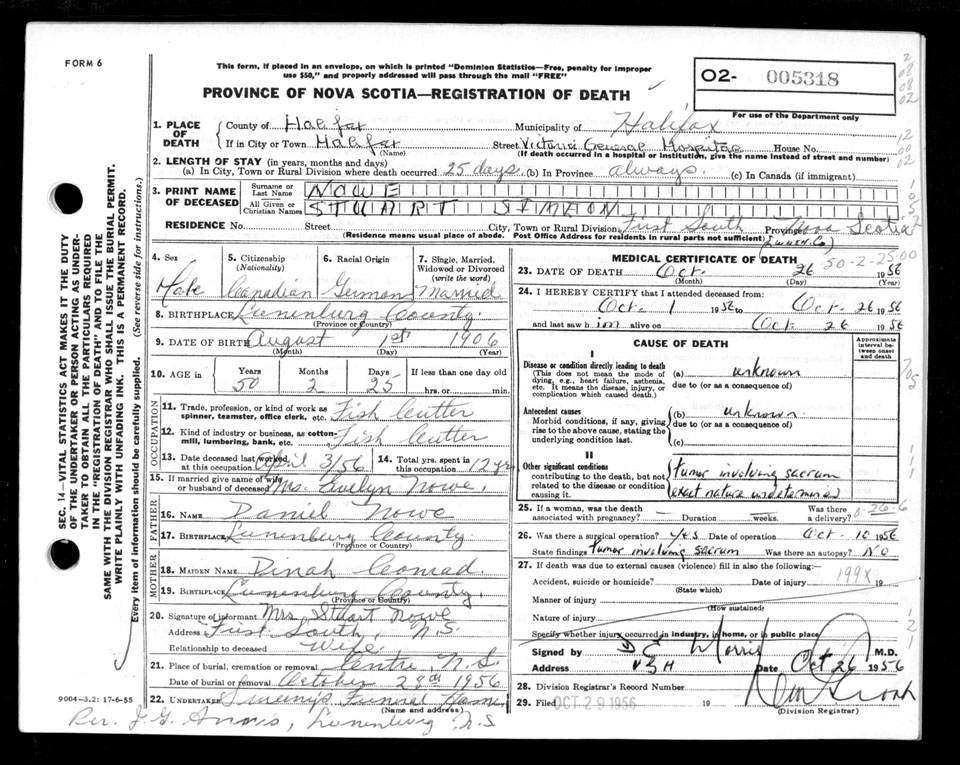 FORM 6
This form, if placed in an envelope, on which is printed "Dominion Statistics—Free, penalty for improper
use $50," and properly addressed will pass through the mail "FREE"
PROVINCE OF NOVA SCOTIA—REGISTRATION OF DEATH
02- 005318
For use of the Department only
1. PLACE OF DEATH
County of Halifax Municipality of Halifax
If in City or Town Halifax Street Victoria General Hospital House No.
(Name) (If death occurred in a hospital or institution, give the name instead of street and number)
2. LENGTH OF STAY (in years, months and days)
(a) In City, Town or Rural Division where death occurred 25 days (b) In Province always. (c) In Canada (if immigrant)
3. PRINT NAME OF DECEASED
Surname or Last Name NOWE
All Given or Christian Names STUART SIMEON
RESIDENCE No. Street City, Town or Rural Division First South Province Nova Scotia
(Residence means usual place of abode. Post Office Address for residents in rural parts not sufficient) (LUNEN. Co)
4. Sex Male
5. Citizenship (Nationality) Canadian
6. Racial Origin German
7. Single, Married, Widowed or Divorced (write the word) Married
8. BIRTHPLACE Lunenburg County.
(Province or Country)
9. DATE OF BIRTH August 1st 1906
(Month) (Day) (Year)
10. AGE in Years 50 Months 2 Days 25 If less than one day old hrs. or min.
OCCUPATION
11. Trade, profession, or kind of work as spinner, teamster, office clerk, etc. Fish Cutter
12. Kind of industry or business, as cotton-mill, lumbering, bank, etc. Fish Cutter
13. Date deceased last worked at this occupation April 3/56 14. Total yrs. spent in this occupation 12 yrs
15. If married give name of wife or husband of deceased Mrs. Evelyn Nowe,
FATHER
16. NAME Daniel Nowe
17. BIRTHPLACE Lunenburg County.
(Province or Country)
MOTHER
18. MAIDEN NAME Dinah Conrad
19. BIRTHPLACE Lunenburg County,
(Province or Country)
20. Signature of informant Mrs Stuart Nowe
Address First South, N.S.
Relationship to deceased Wife.
21. Place of burial, cremation or removal Centre, N.S
Date of burial or removal October 28th 1956
22. UNDERTAKER Sweeny's Funeral Home
(Name and address)
9004—3.2: 17-6-55
Rev. J.G. Lunenburg N.S
MEDICAL CERTIFICATE OF DEATH
50-2-25-00
23. DATE OF DEATH Oct. 26 1956
(Month) (Day) (Year)
24. I HEREBY CERTIFY that I attended deceased from:
Oct. 1 1956 to Oct. 26 1956
and last saw him alive on Oct 26 1956
CAUSE OF DEATH
Approximate interval between onset and death
I
Disease or condition directly leading to death
(This does not mean the mode of dying, e.g., heart failure, asthenia, etc. It means the disease, injury, or complication which caused death.)
(a) unknown
due to (or as a consequence of)
Antecedent causes
Morbid conditions, if any, giving rise to the above cause, stating the underlying condition last.
(b) unknown.
due to (or as a consequence of)
(c)
II
Other significant conditions
contributing to the death, but not related to the disease or condition causing it.
tumor involving sacrum
exact nature undetermined
25. If a woman, was the death associated with pregnancy? — Duration — weeks. Was there a delivery?
0-26-6
26. Was there a surgical operation? yes Date of operation Oct. 10 1956
State findings tumor involving sacrum Was there an autopsy? NO
27. If death was due to external causes (violence) fill in also the following:—
Accident, suicide or homicide? Date of injury 19
(State which)
199X
Manner of injury
(How sustained)
Nature of injury
Specify whether injury occurred in industry, in home, or in public place
Signed by D E Morris M.D.
Address VGH Date Oct 26 1956
28. Division Registrar's Record Number
29. Filed OCT 29 1956 19
(Division Registrar)
SEC. 14—VITAL STATISTICS ACT MAKES IT THE DUTY
OF THE UNDERTAKER OR PERSON ACTING AS UNDER-
TAKER "TO OBTAIN ALL THE PARTICULARS REQUIRED
IN THE "REGISTRATION OF DEATH" AND TO FILE THE
SAME WITH THE DIVISION REGISTRAR WHO SHALL ISSUE THE BURIAL PERMIT.
WRITE PLAINLY WITH UNFADING INK. THIS IS A PERMANENT RECORD.
Every item of information should be carefully supplied. (See reverse side for instructions.)